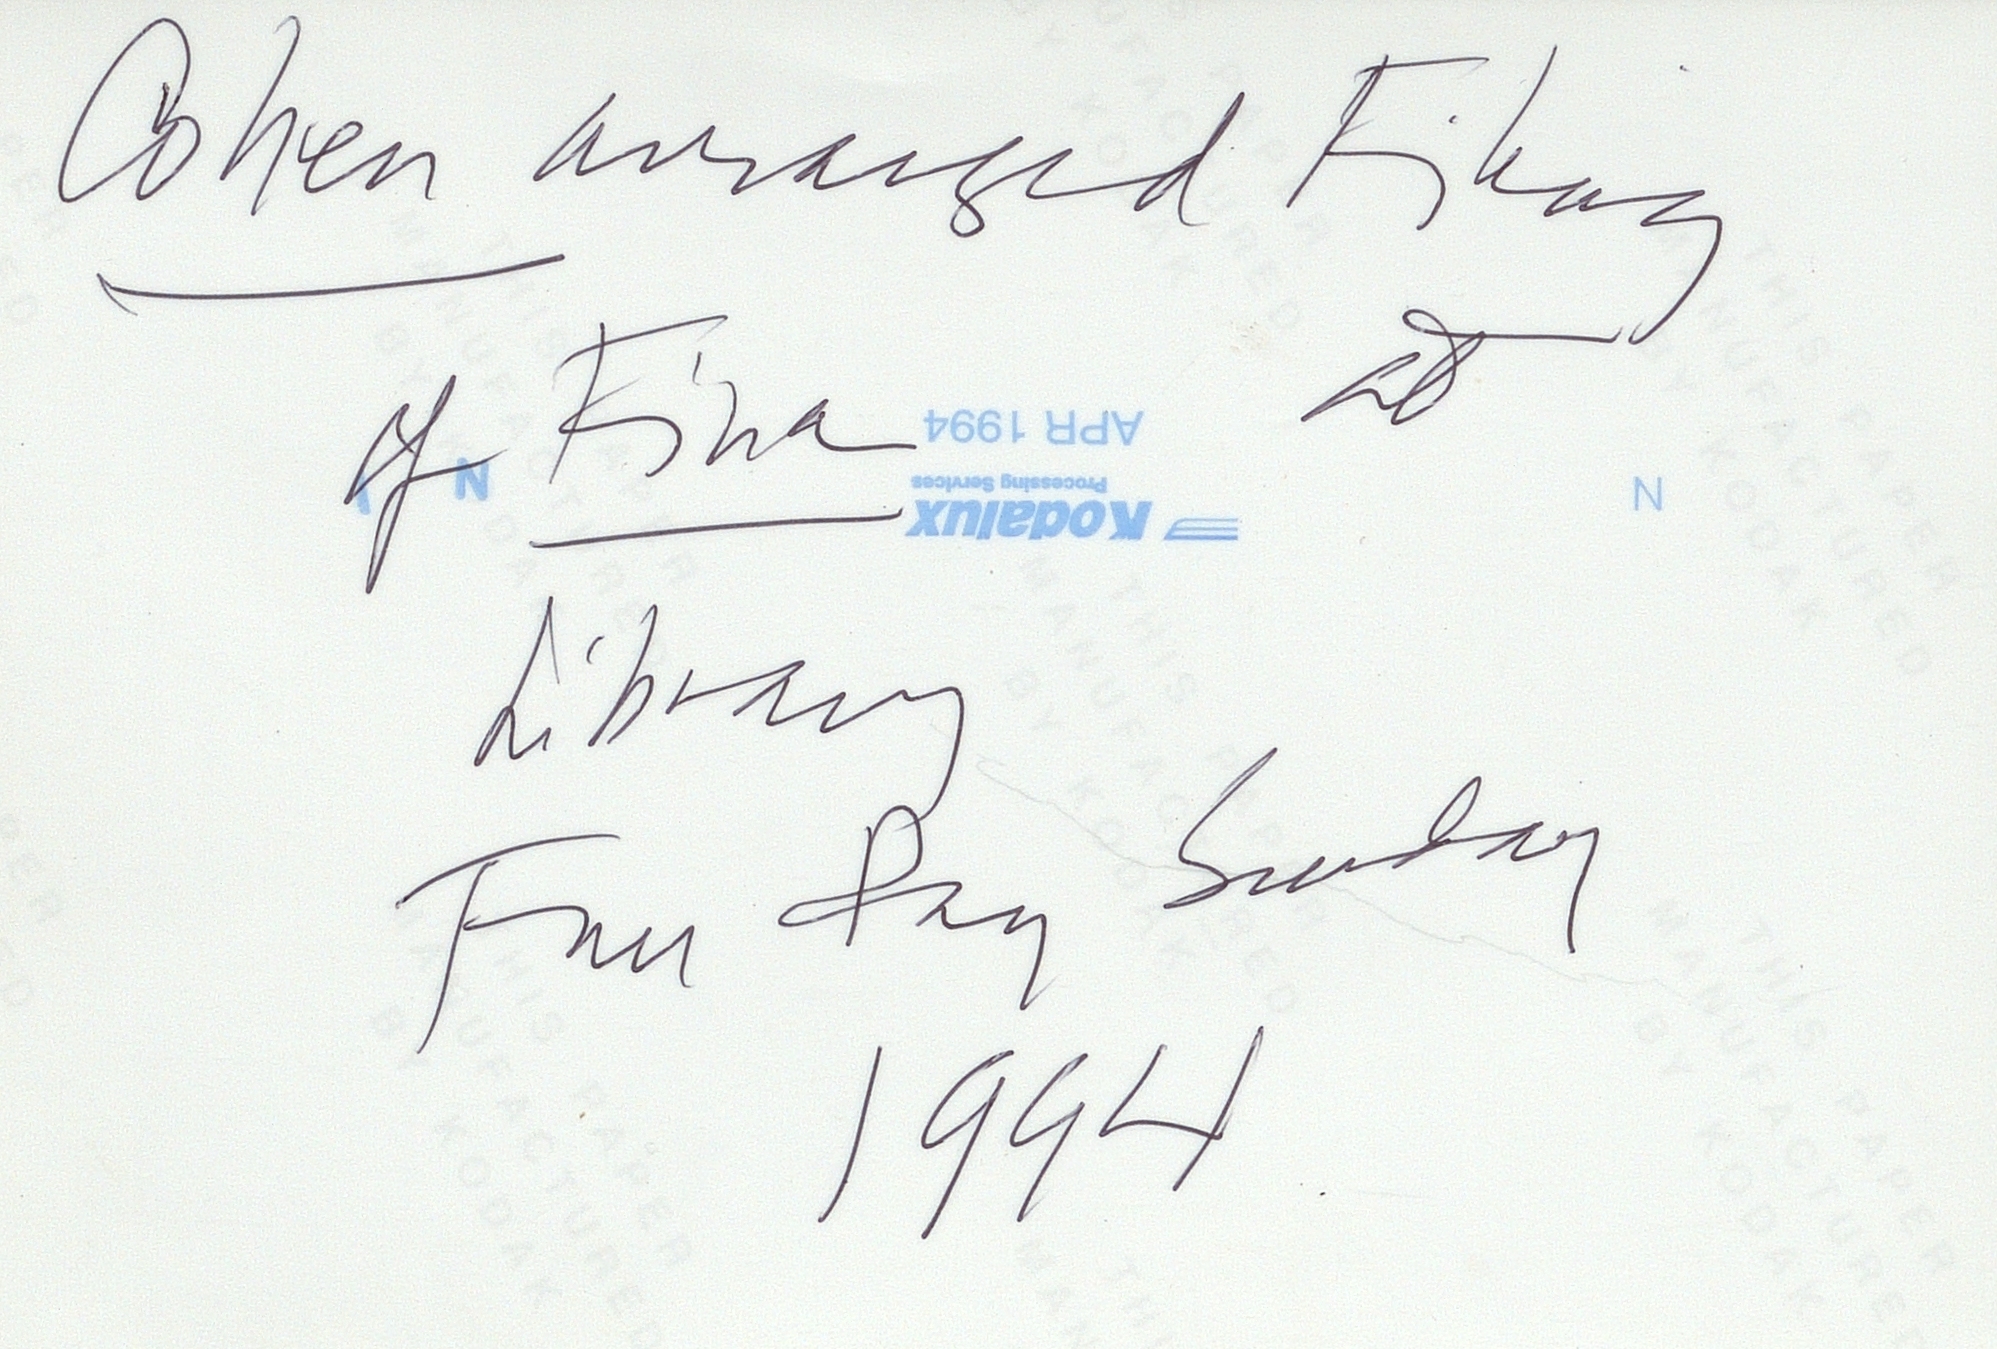 Cohen arranged
of Fina at
Library
Day Sunday
1994
Kodalux
Processing Services
APR 1994
N N
THIS PAPER
MANUFACTURED
BY KODAK